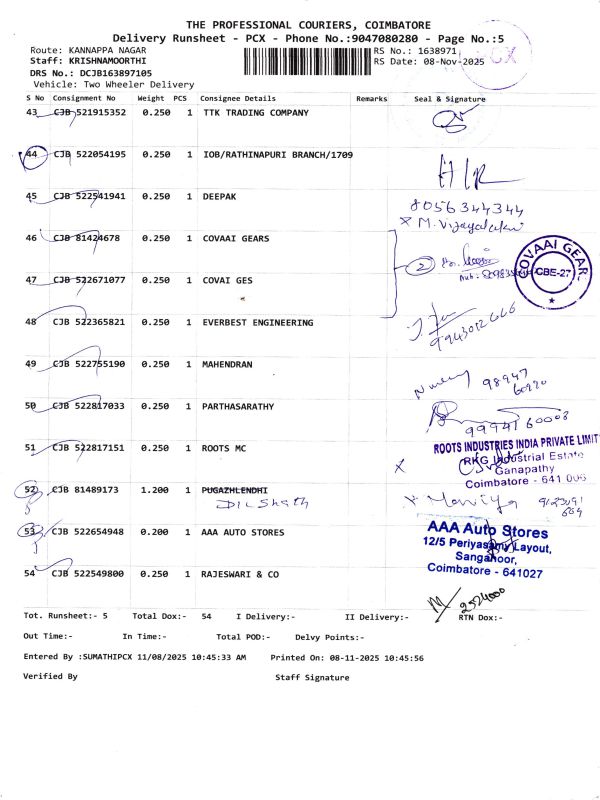 THE PROFESSIONAL COURIERS, COIMBATORE
Delivery Runsheet - PCX - Phone No.:9047080280 - Page No.:5
Route: KANNAPPA NAGAR RS No.: 1638971
Staff: KRISHNAMOORTHI RS Date: 08-Nov-2025
DRS No.: DCJB163897105
Vehicle: Two Wheeler Delivery
S No Consignment No Weight PCS Consignee Details Remarks Seal & Signature
43 CJB 521915352 0.250 1 TTK TRADING COMPANY
44 CJB 522054195 0.250 1 IOB/RATHINAPURI BRANCH/1709
45 CJB 522541941 0.250 1 DEEPAK
8056344344
x M. Vijayalakshmi
46 CJB 81424678 0.250 1 COVAAI GEARS
2
COVAAI GEAR
CBE-27
47 CJB 522671077 0.250 1 COVAI GES
48 CJB 522365821 0.250 1 EVERBEST ENGINEERING
9943012666
49 CJB 522755190 0.250 1 MAHENDRAN
98947
60920
50 CJB 522817033 0.250 1 PARTHASARATHY
9994160008
51 CJB 522817151 0.250 1 ROOTS MC
ROOTS INDUSTRIES INDIA PRIVATE LIMIT
RKG Industrial Estate
Ganapathy
Coimbatore - 641 006
x
52 CJB 81489173 1.200 1 PUGAZHLENDHI
Dilshath
53 CJB 522654948 0.200 1 AAA AUTO STORES
AAA Auto Stores
12/5 Periyasamy Layout,
Sanganoor,
Coimbatore - 641027
54 CJB 522549800 0.250 1 RAJESWARI & CO
2524000
Tot. Runsheet:- 5 Total Dox:- 54 I Delivery:- II Delivery:- RTN Dox:-
Out Time:- In Time:- Total POD:- Delvy Points:-
Entered By :SUMATHIPCX 11/08/2025 10:45:33 AM Printed On: 08-11-2025 10:45:56
Verified By Staff Signature